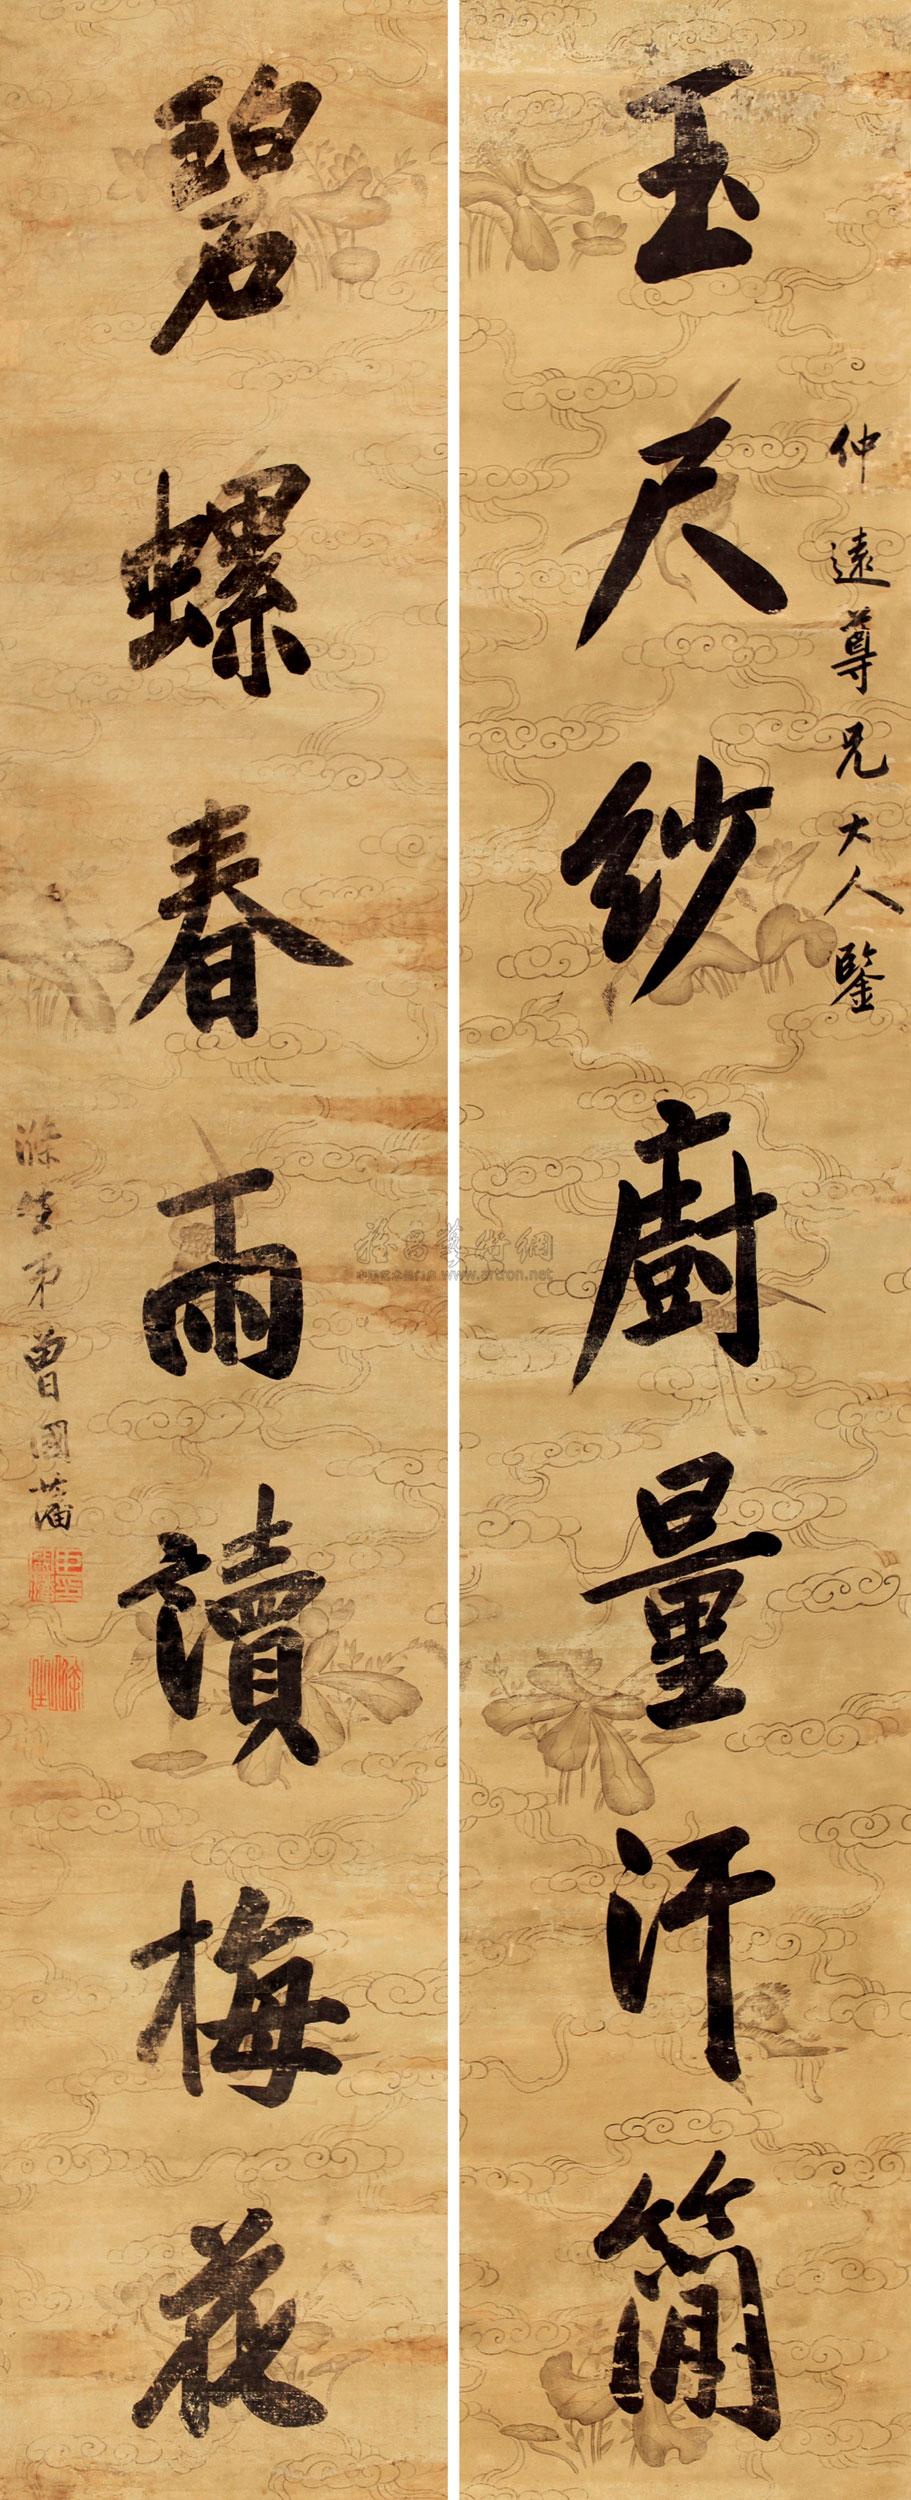 仲遠尊兄大人鑒
玉尺紗廚量汗簡
碧螺春雨讀梅花
滌生弟曾國藩
www.artron.net